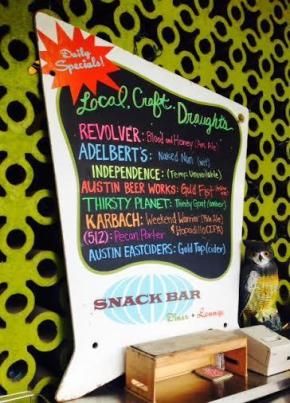 Daily
Specials!
Local. Craft. Draughts
REVOLVER: Blood and Honey (Am. Ale)
ADELBERT'S: Naked Nun (wit)
INDEPENDENCE: (Temp. Unavailable)
AUSTIN BEER WORKS: Gold Fist
THIRSTY PLANET: Thirsty Goat (amber)
KARBACH: Weekend Warrior (Pale Ale)
& Hopadillo (IPA)
(512): Pecan Porter
AUSTIN EASTCIDERS: Gold Top (cider)
SNACK BAR
Diner + Lounge